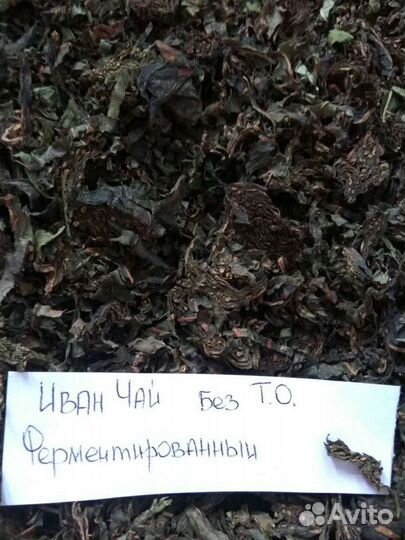 Иван Чай Без Т.О.
Ферментированный
Avito